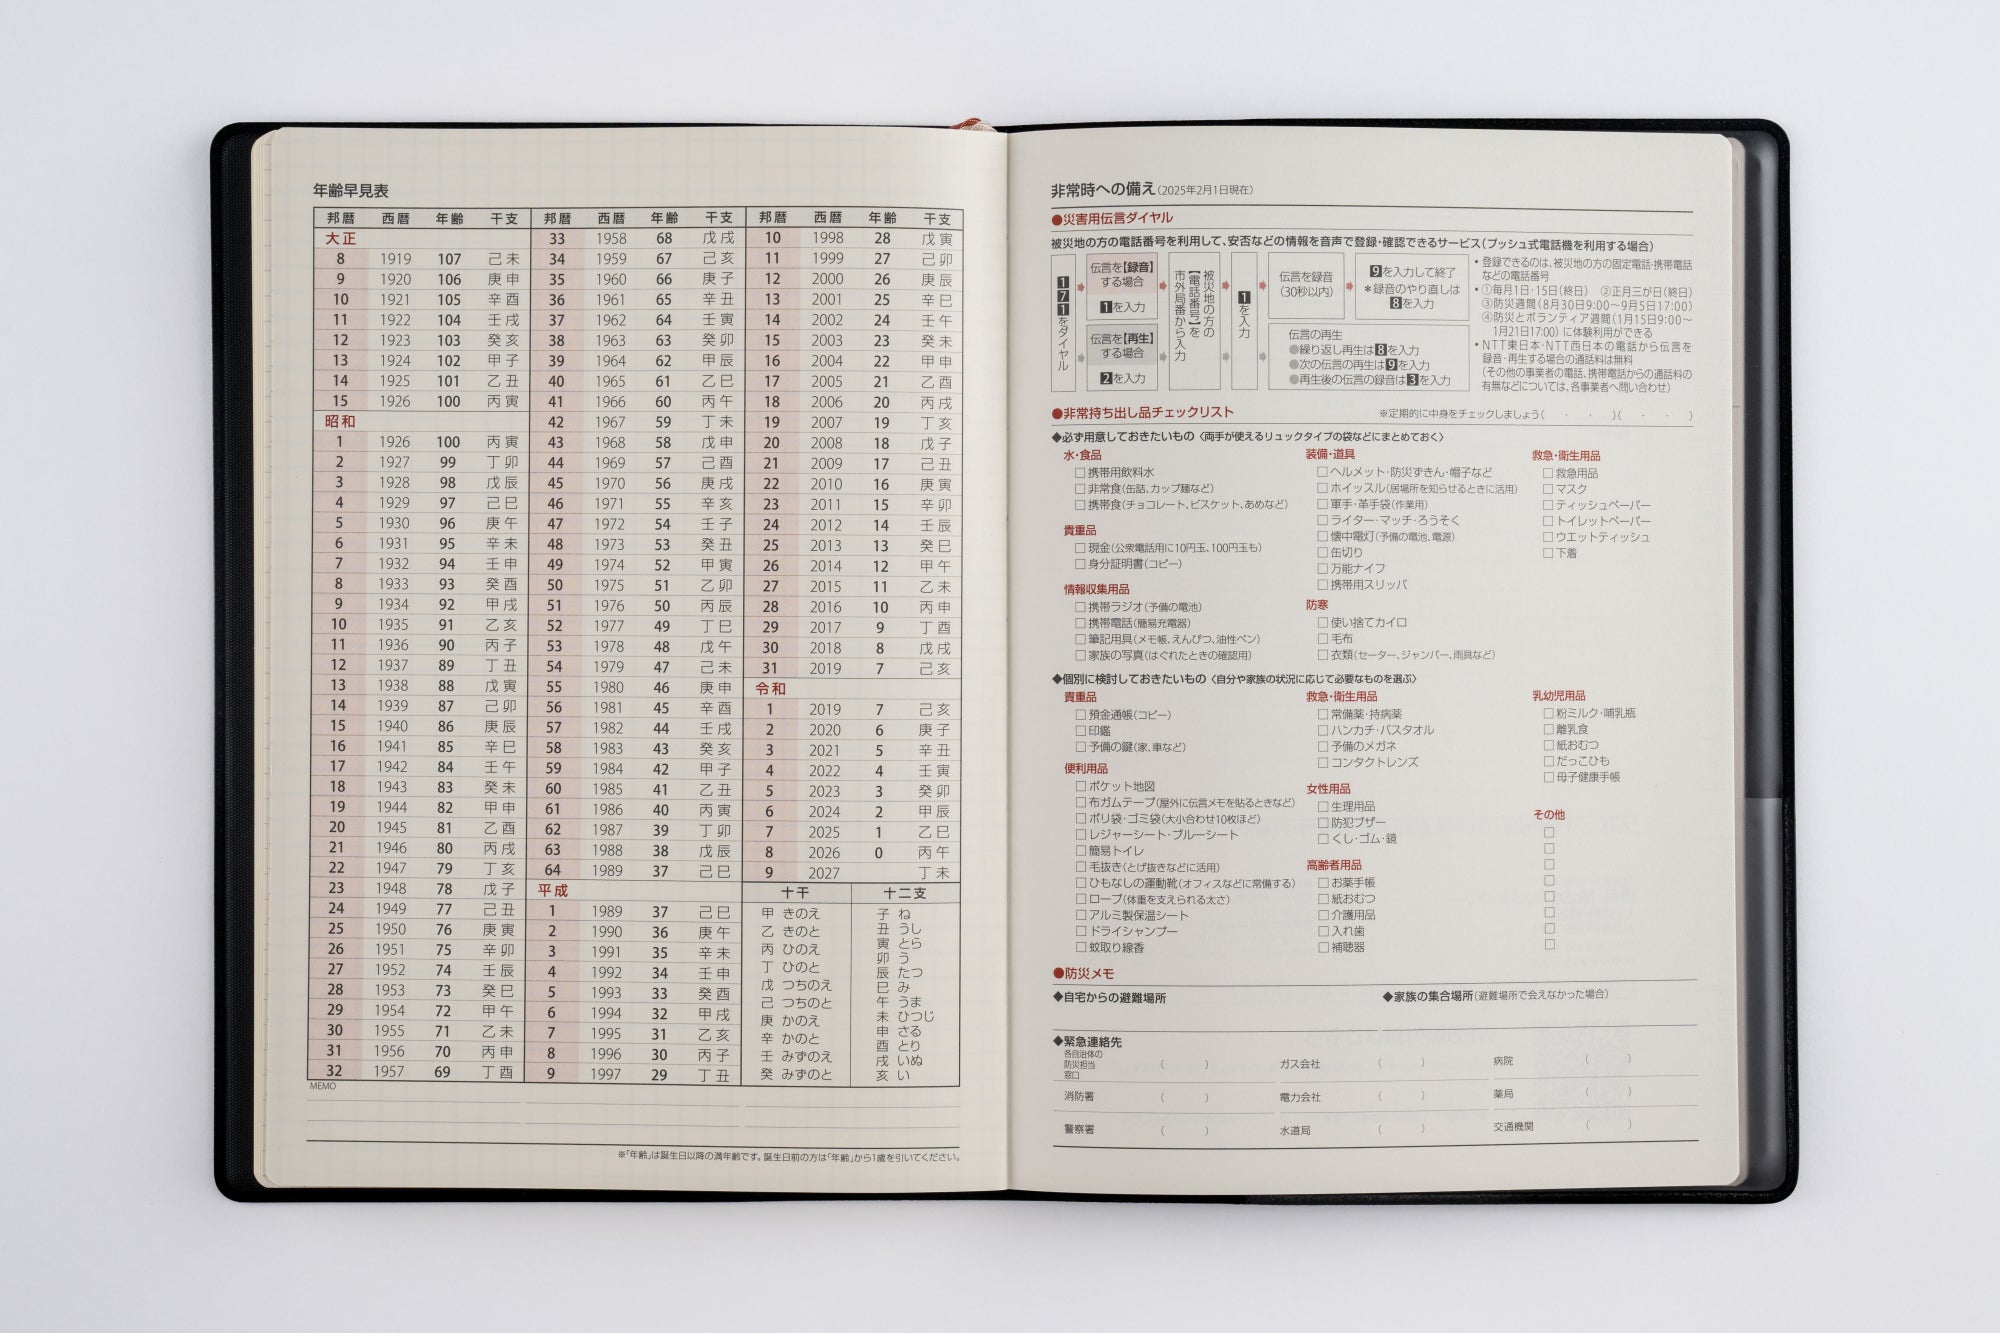 年齢早見表
邦暦 西暦 年齢 干支
大正
8 1919 107 己未
9 1920 106 庚申
10 1921 105 辛酉
11 1922 104 壬戌
12 1923 103 癸亥
13 1924 102 甲子
14 1925 101 乙丑
15 1926 100 丙寅
昭和
1 1926 100 丙寅
2 1927 99 丁卯
3 1928 98 戊辰
4 1929 97 己巳
5 1930 96 庚午
6 1931 95 辛未
7 1932 94 壬申
8 1933 93 癸酉
9 1934 92 甲戌
10 1935 91 乙亥
11 1936 90 丙子
12 1937 89 丁丑
13 1938 88 戊寅
14 1939 87 己卯
15 1940 86 庚辰
16 1941 85 辛巳
17 1942 84 壬午
18 1943 83 癸未
19 1944 82 甲申
20 1945 81 乙酉
21 1946 80 丙戌
22 1947 79 丁亥
23 1948 78 戊子
24 1949 77 己丑
25 1950 76 庚寅
26 1951 75 辛卯
27 1952 74 壬辰
28 1953 73 癸巳
29 1954 72 甲午
30 1955 71 乙未
31 1956 70 丙申
32 1957 69 丁酉
邦暦 西暦 年齢 干支
33 1958 68 戊戌
34 1959 67 己亥
35 1960 66 庚子
36 1961 65 辛丑
37 1962 64 壬寅
38 1963 63 癸卯
39 1964 62 甲辰
40 1965 61 乙巳
41 1966 60 丙午
42 1967 59 丁未
43 1968 58 戊申
44 1969 57 己酉
45 1970 56 庚戌
46 1971 55 辛亥
47 1972 54 壬子
48 1973 53 癸丑
49 1974 52 甲寅
50 1975 51 乙卯
51 1976 50 丙辰
52 1977 49 丁巳
53 1978 48 戊午
54 1979 47 己未
55 1980 46 庚申
56 1981 45 辛酉
57 1982 44 壬戌
58 1983 43 癸亥
59 1984 42 甲子
60 1985 41 乙丑
61 1986 40 丙寅
62 1987 39 丁卯
63 1988 38 戊辰
64 1989 37 己巳
平成
1 1989 37 己巳
2 1990 36 庚午
3 1991 35 辛未
4 1992 34 壬申
5 1993 33 癸酉
6 1994 32 甲戌
7 1995 31 乙亥
8 1996 30 丙子
9 1997 29 丁丑
邦暦 西暦 年齢 干支
10 1998 28 戊寅
11 1999 27 己卯
12 2000 26 庚辰
13 2001 25 辛巳
14 2002 24 壬午
15 2003 23 癸未
16 2004 22 甲申
17 2005 21 乙酉
18 2006 20 丙戌
19 2007 19 丁亥
20 2008 18 戊子
21 2009 17 己丑
22 2010 16 庚寅
23 2011 15 辛卯
24 2012 14 壬辰
25 2013 13 癸巳
26 2014 12 甲午
27 2015 11 乙未
28 2016 10 丙申
29 2017 9 丁酉
30 2018 8 戊戌
31 2019 7 己亥
令和
1 2019 7 己亥
2 2020 6 庚子
3 2021 5 辛丑
4 2022 4 壬寅
5 2023 3 癸卯
6 2024 2 甲辰
7 2025 1 乙巳
8 2026 0 丙午
9 2027 丁未
十干
甲 きのえ
乙 きのと
丙 ひのえ
丁 ひのと
戊 つちのえ
己 つちのと
庚 かのえ
辛 かのと
壬 みずのえ
癸 みずのと
十二支
子 ね
丑 うし
寅 とら
卯 う
辰 たつ
巳 み
午 うま
未 ひつじ
申 さる
酉 とり
戌 いぬ
亥 い
MEMO
※「年齢」は誕生日以降の満年齢です。誕生日前の方は「年齢」から1歳を引いてください。
非常時への備え(2025年2月1日現在)
●災害用伝言ダイヤル
被災地の方の電話番号を利用して、安否などの情報を音声で登録・確認できるサービス(プッシュ式電話機を利用する場合)
171をダイヤル
伝言を【録音】
する場合
1を入力
伝言を【再生】
する場合
2を入力
被災地の方の
【電話番号】を
市外局番から入力
1を入力
伝言を録音
(30秒以内)
9を入力して終了
＊録音のやり直しは
8を入力
伝言の再生
●繰り返し再生は8を入力
●次の伝言の再生は9を入力
●再生後の伝言の録音は3を入力
・登録できるのは、被災地の方の固定電話・携帯電話
などの電話番号
・①毎月1日・15日(終日) ②正月三が日(終日)
③防災週間(8月30日9:00～9月5日17:00)
④防災とボランティア週間(1月15日9:00～
1月21日17:00)に体験利用ができる
・NTT東日本・NTT西日本の電話から伝言を
録音・再生する場合の通話料は無料
(その他の事業者の電話、携帯電話からの通話料の
有無などについては、各事業者へ問い合わせ)
●非常持ち出し品チェックリスト ※定期的に中身をチェックしましょう( ・ ・ )( ・ ・ )
◆必ず用意しておきたいもの〈両手が使えるリュックタイプの袋などにまとめておく〉
水・食品
□携帯用飲料水
□非常食(缶詰、カップ麺など)
□携帯食(チョコレート、ビスケット、あめなど)
貴重品
□現金(公衆電話用に10円玉、100円玉も)
□身分証明書(コピー)
情報収集用品
□携帯ラジオ(予備の電池)
□携帯電話(簡易充電器)
□筆記用具(メモ帳、えんぴつ、油性ペン)
□家族の写真(はぐれたときの確認用)
装備・道具
□ヘルメット・防災ずきん・帽子など
□ホイッスル(居場所を知らせるときに活用)
□軍手・革手袋(作業用)
□ライター・マッチ・ろうそく
□懐中電灯(予備の電池、電源)
□缶切り
□万能ナイフ
□携帯用スリッパ
防寒
□使い捨てカイロ
□毛布
□衣類(セーター、ジャンパー、雨具など)
救急・衛生用品
□救急用品
□マスク
□ティッシュペーパー
□トイレットペーパー
□ウエットティッシュ
□下着
◆個別に検討しておきたいもの〈自分や家族の状況に応じて必要なものを選ぶ〉
貴重品
□預金通帳(コピー)
□印鑑
□予備の鍵(家、車など)
便利用品
□ポケット地図
□布ガムテープ(屋外に伝言メモを貼るときなど)
□ポリ袋・ゴミ袋(大小合わせ10枚ほど)
□レジャーシート・ブルーシート
□簡易トイレ
□毛抜き(とげ抜きなどに活用)
□ひもなしの運動靴(オフィスなどに常備する)
□ロープ(体重を支えられる太さ)
□アルミ製保温シート
□ドライシャンプー
□蚊取り線香
救急・衛生用品
□常備薬・持病薬
□ハンカチ・バスタオル
□予備のメガネ
□コンタクトレンズ
女性用品
□生理用品
□防犯ブザー
□くし・ゴム・鏡
高齢者用品
□お薬手帳
□紙おむつ
□介護用品
□入れ歯
□補聴器
乳幼児用品
□粉ミルク・哺乳瓶
□離乳食
□紙おむつ
□だっこひも
□母子健康手帳
その他
□
□
□
□
□
□
□
□
●防災メモ
◆自宅からの避難場所 ◆家族の集合場所(避難場所で会えなかった場合)
◆緊急連絡先
各自治体の
防災担当
窓口 ( ) ガス会社 ( ) 病院 ( )
消防署 ( ) 電力会社 ( ) 薬局 ( )
警察署 ( ) 水道局 ( ) 交通機関 ( )